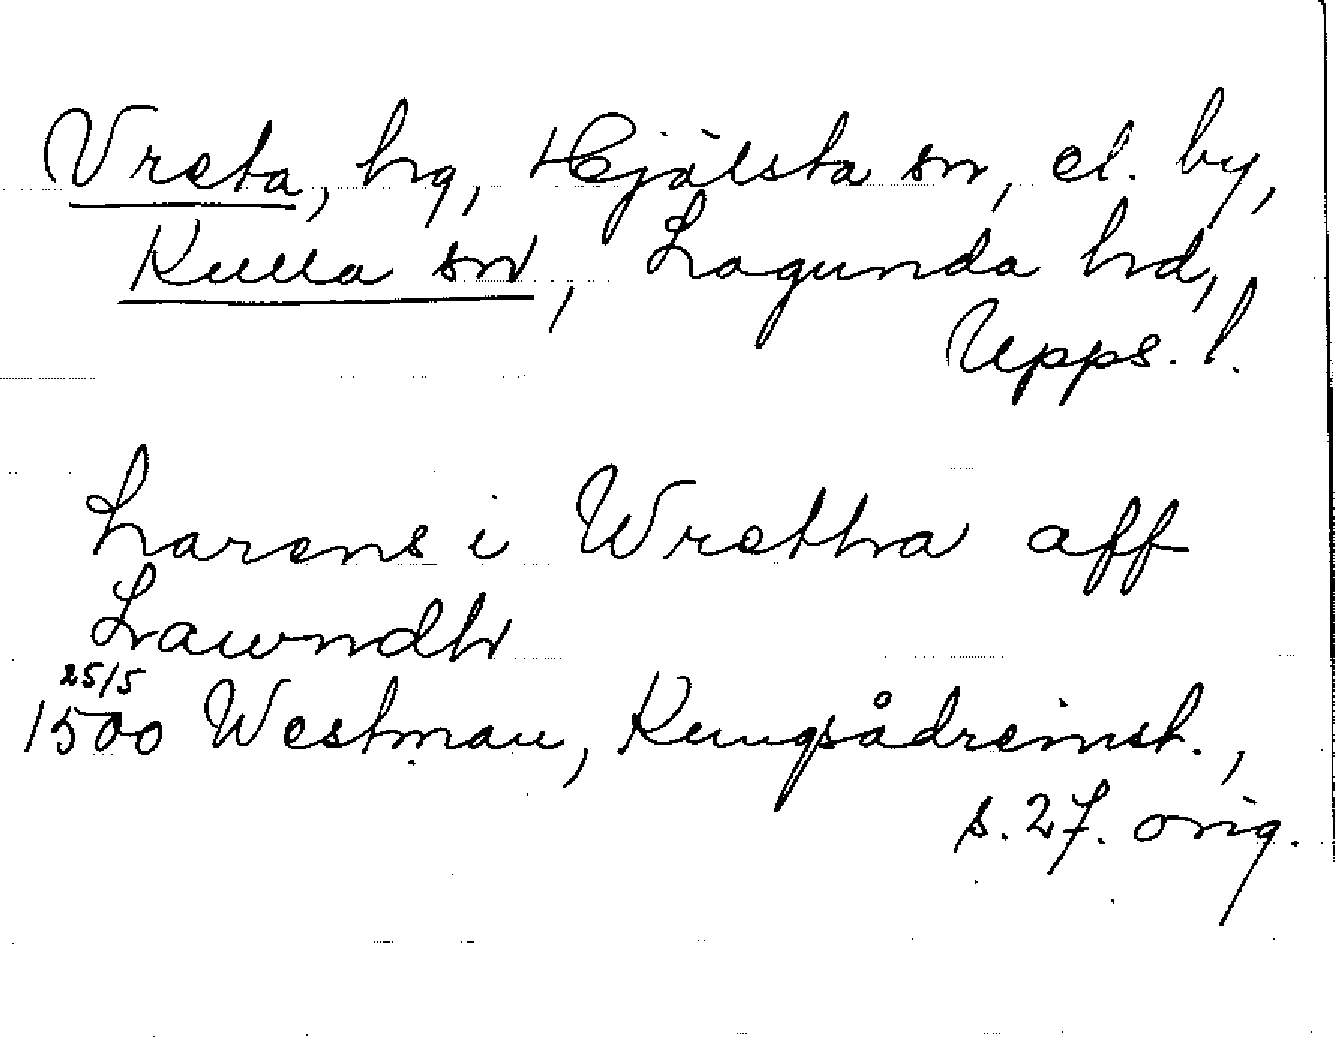 Vreta, hg, Hjälsta sn, el. by,
Kulla sn, Lagunda hd,
Upps. l.
Larens i Wretha aff
Lawndh
25/5
1500 Westman, Kungsådreinst.,
s. 27. orig.